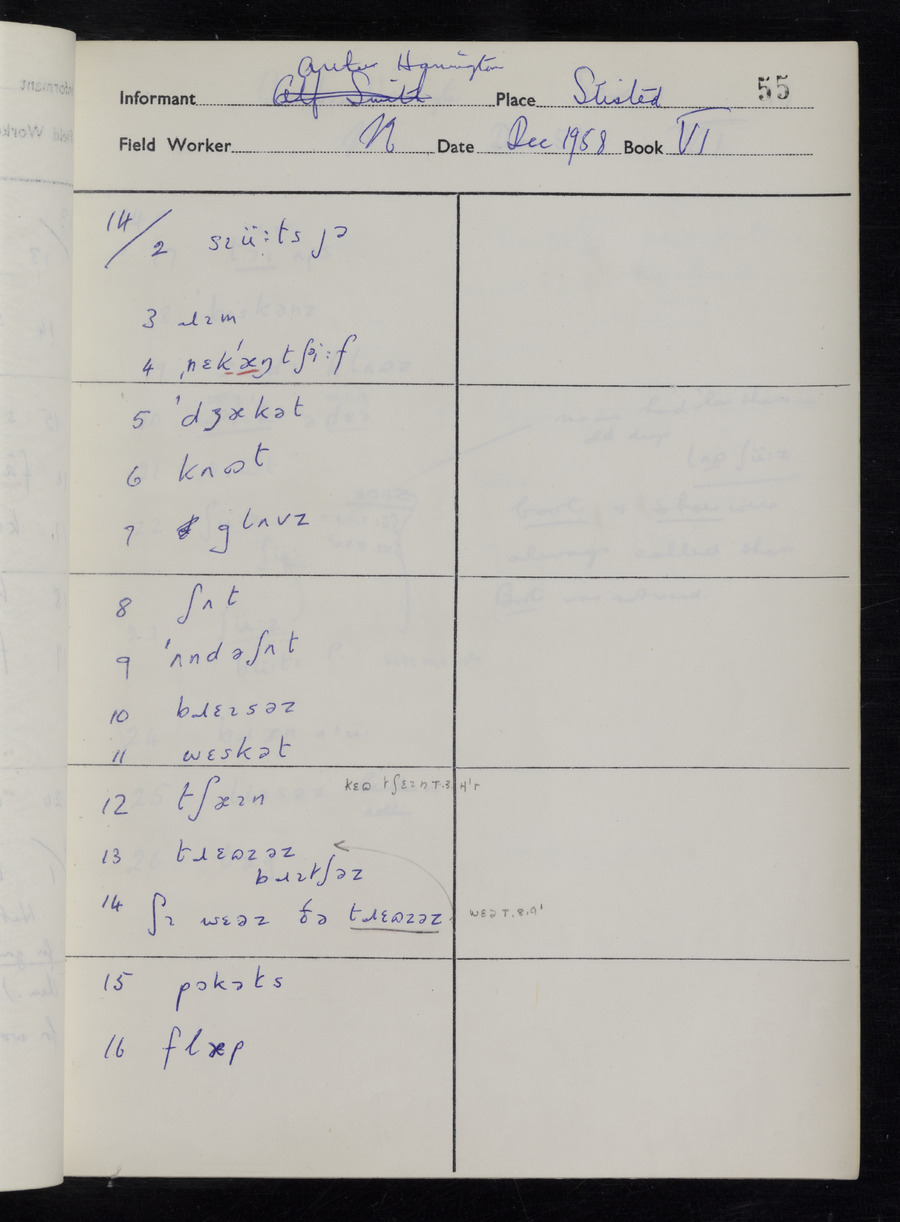 Arthur Harrington
Informant Alf Smith Place Stisted 55
Field Worker N Date Dec 1958 Book VI
14/2 sɪüːts ɟə
3 ɹɪm
4 ˌnɛkˈæŋtʃəiːf
5 ˈdʒækət
6 kʌʊt
7 glʌvz
8 ʃʌt
9 ˈʌndəʃʌt
10 bɹɛɪsəz
11 wɛskət
12 tʃæɪn
kɛʊ tʃɛɪn T.3 4'r
13 tɹɛʊzəz
bɹɪtʃəz
14 ʃɪ wɛəz ðə tɹɛʊzəz
wɛə T.8.9'
15 pɒkəts
16 flæp